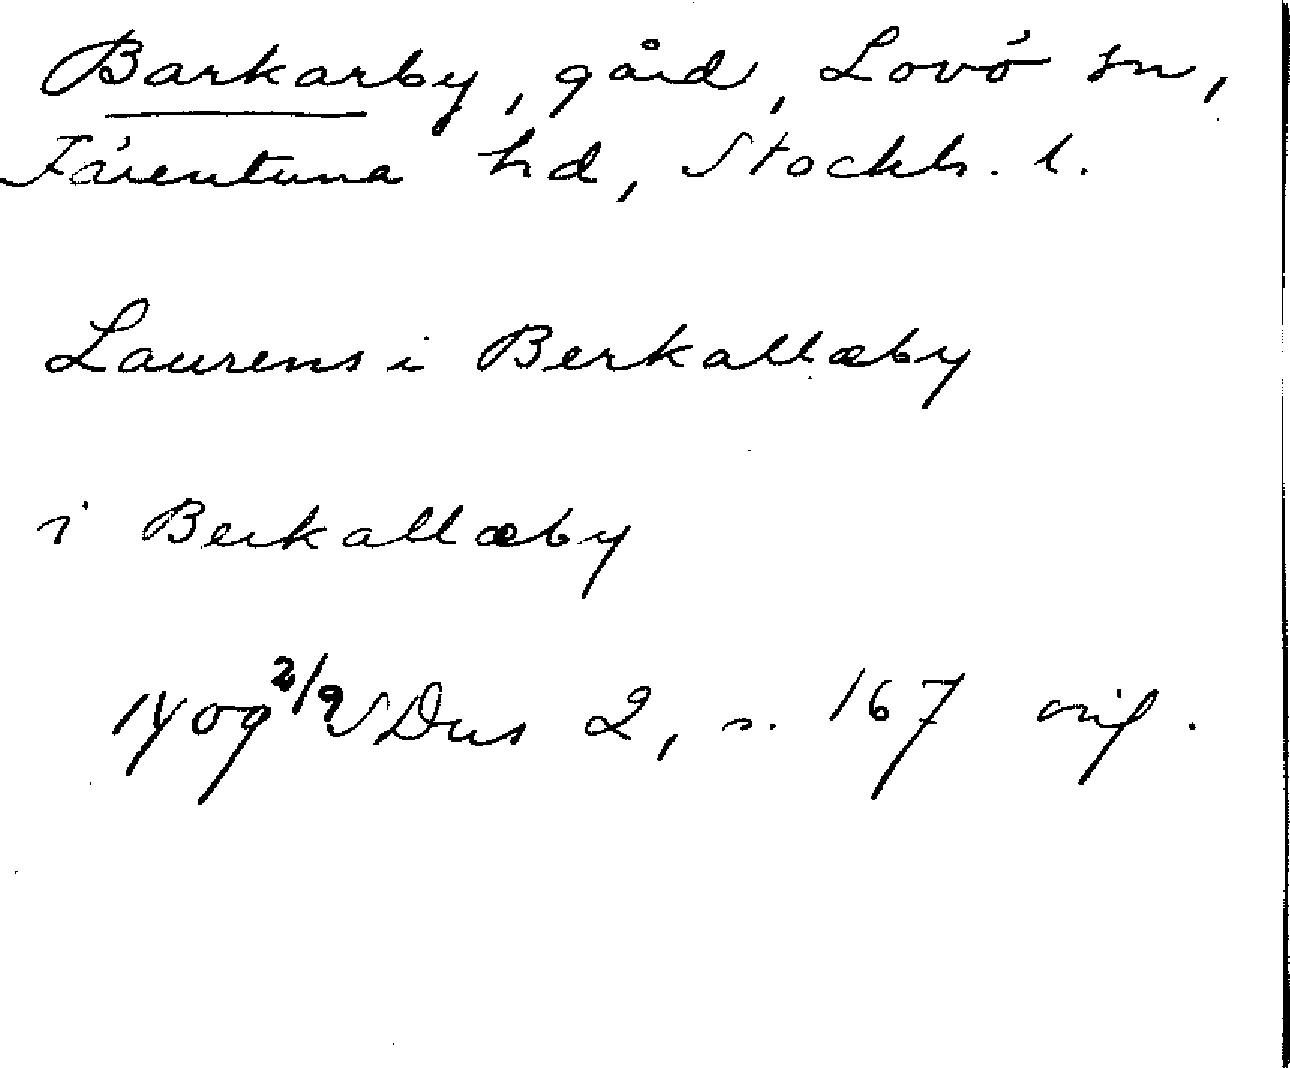 Barkarby, gård, Lovö sn,
Färentuna hd, Stockh. l.
Laurens i Berkallæby
i Berkallæby
1409 2/9 SDns 2, s. 167 orig.